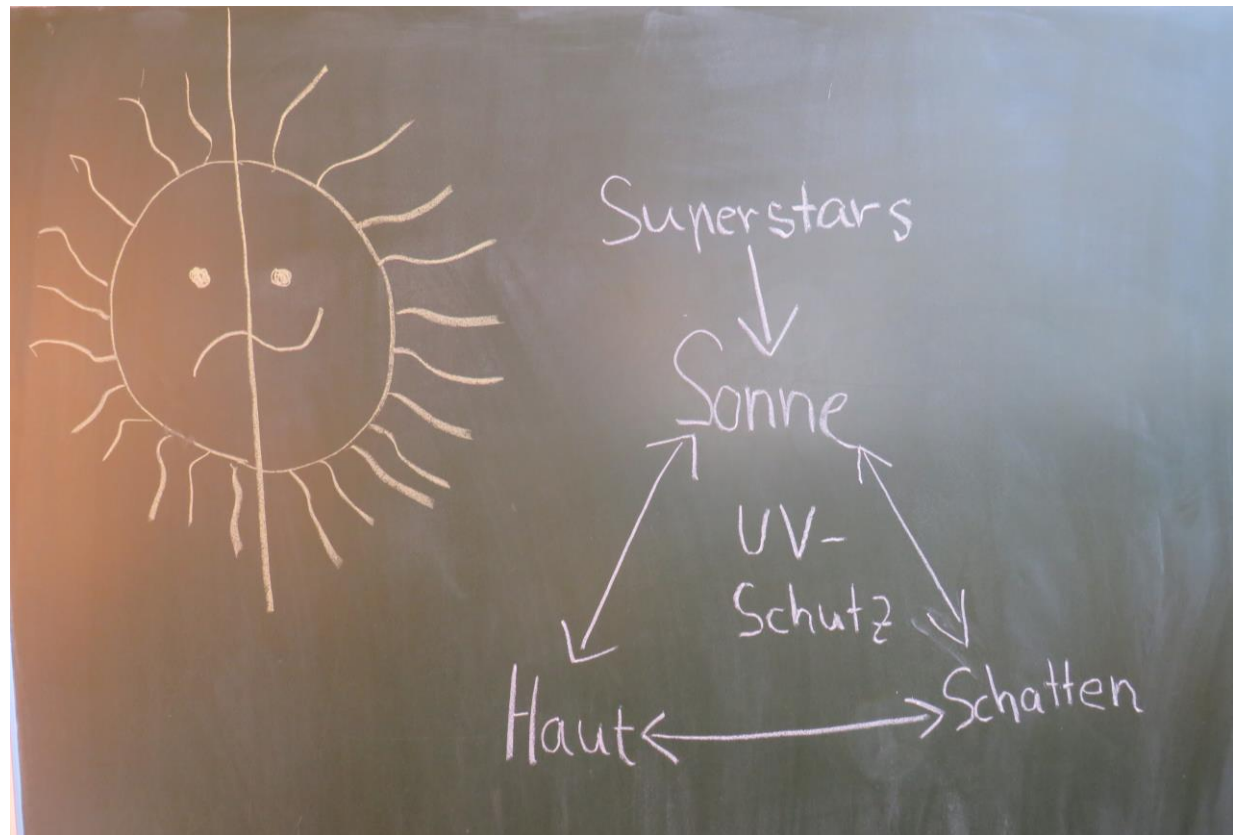 Superstars
Sonne
UV-
Schutz
Haut
Schatten